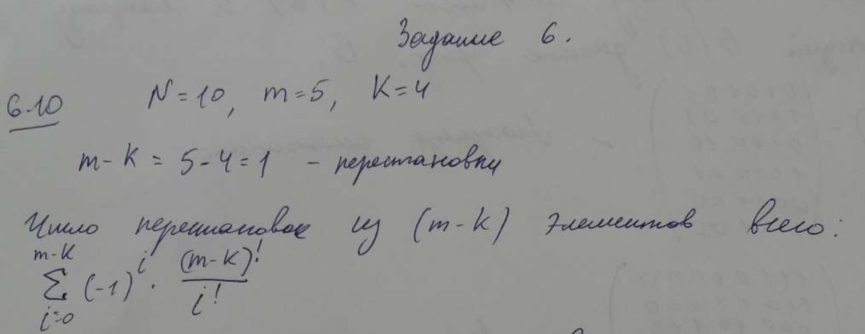 Задание 6.
6.10 N=10, m=5, K=4
m-K = 5-4=1 - перестановки
Число перестановок из (m-K) элементов всего:
m-K
∑ (-1)^i · (m-K)!/i!
i=0